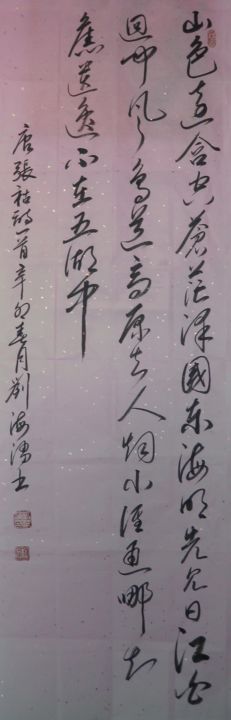 山色遠含空蒼茫澤國東海明先見日江白
迥聞風鳥道高原去人烟小徑通哪知
舊遺逸不在五湖中
唐張祜詩一首辛卯春月劉海濤书